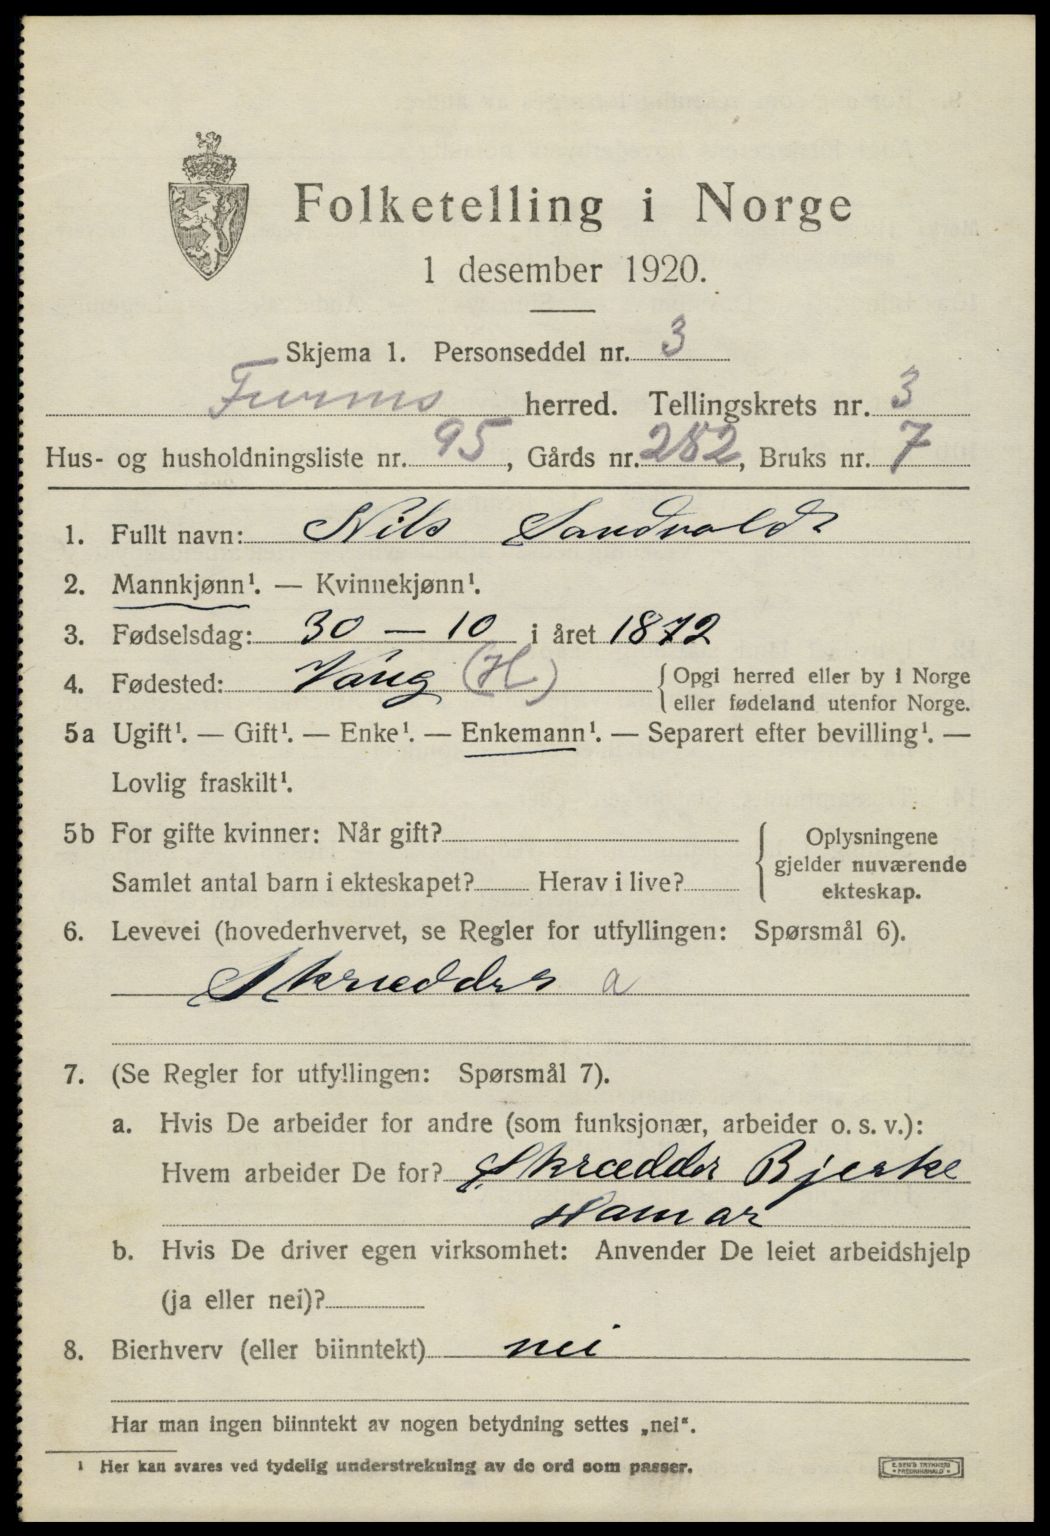 Folketelling i Norge
1 desember 1920.
Skjema 1. Personseddel nr. 3
Furnes herred. Tellingskrets nr. 3
Hus- og husholdningsliste nr. 95, Gårds nr. 282, Bruks nr. 7
1. Fullt navn: Nils Sandvold
2. Mannkjønn¹. — Kvinnekjønn¹.
3. Fødselsdag: 30 — 10 i året 1872
4. Fødested: Vang (H) { Opgi herred eller by i Norge
eller fødeland utenfor Norge.
5a Ugift¹. — Gift¹. — Enke¹. — Enkemann¹. — Separert efter bevilling¹. —
Lovlig fraskilt¹.
5b For gifte kvinner: Når gift?
Samlet antal barn i ekteskapet? Herav i live?
{ Oplysningene
gjelder nuværende
ekteskap.
6. Levevei (hovederhvervet, se Regler for utfyllingen: Spørsmål 6).
Skrædder a
7. (Se Regler for utfyllingen: Spørsmål 7).
a. Hvis De arbeider for andre (som funksjonær, arbeider o. s. v.):
Hvem arbeider De for? Skrædder Bjerke
Hamar
b. Hvis De driver egen virksomhet: Anvender De leiet arbeidshjelp
(ja eller nei)?
8. Bierhverv (eller biinntekt) nei
Har man ingen biinntekt av nogen betydning settes „nei“.
¹ Her kan svares ved tydelig understrekning av de ord som passer.
E. SEM'S TRYKKERI
FREDRIKSHALD